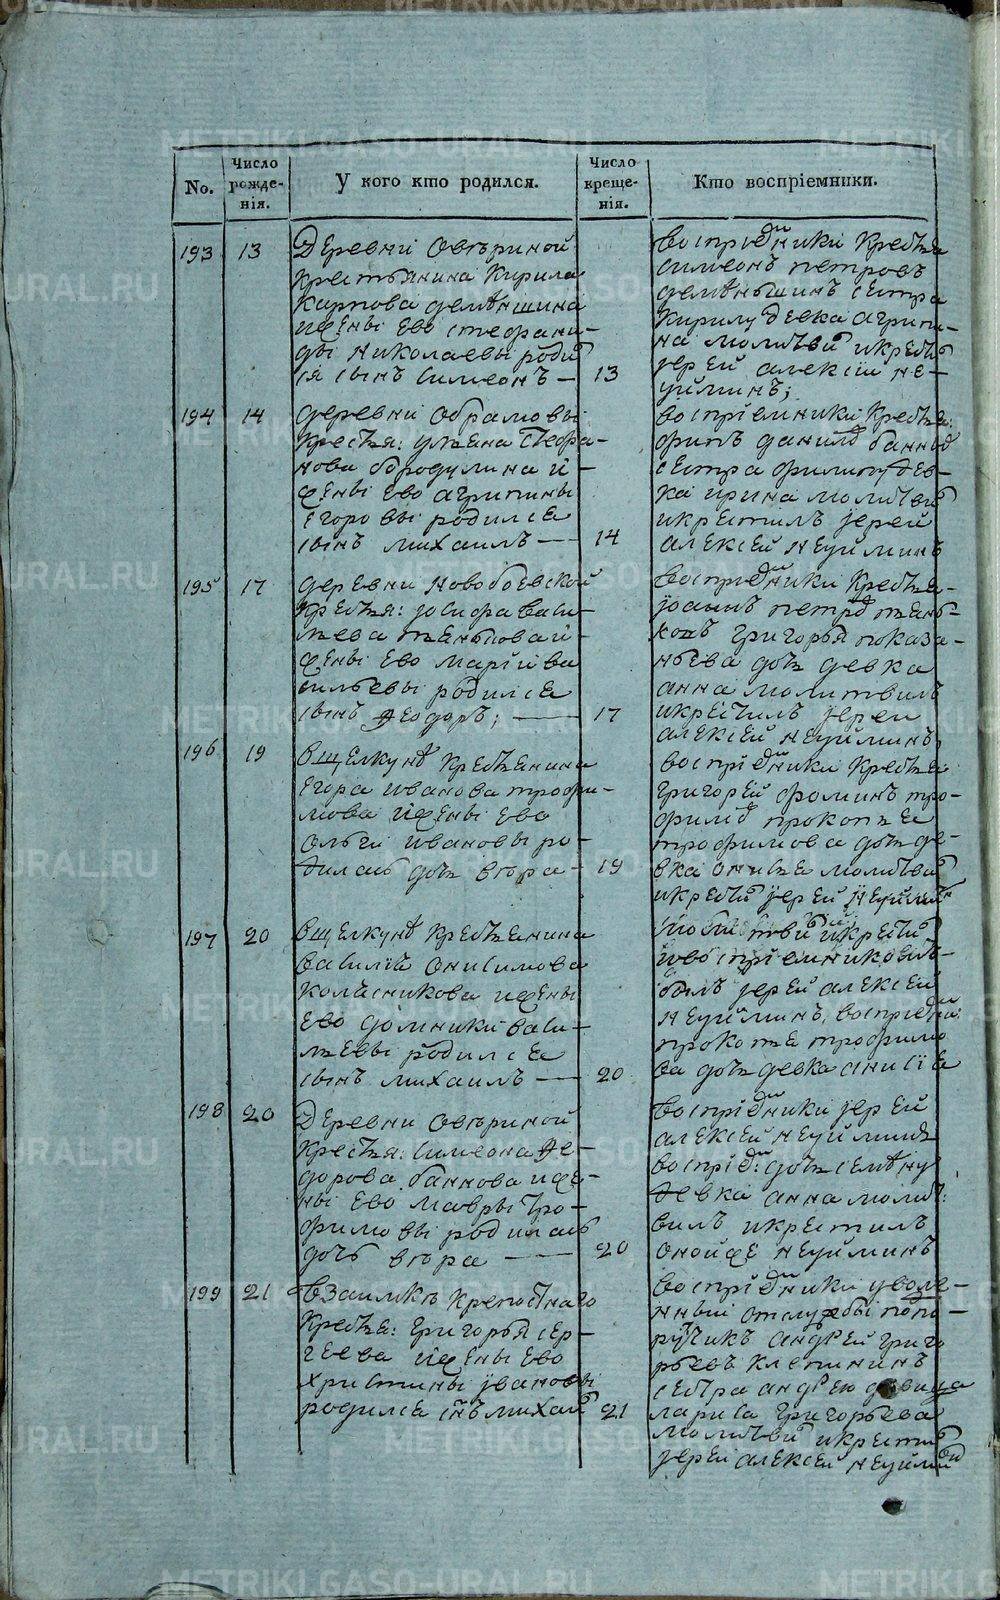 No.
Число рожде-нія.
У кого кто родился.
Число креще-нія.
Кто воспріемники.
193
13
Деревни Овчриной
крестьянина Кирила
Карпова деменшина
ижены Ево стефани-
ды Николаевы роди
ся сынъ Симеонъ —
13
воспріемники Крестья
симеонъ петровъ
деменьшинъ сестра
Кирилу девка агрипи-
на молитви икрести
Іерей алексій не-
уйминъ;
194
14
деревни Абрамовы
Крестья: ульяна Стефа-
нова бородулина и-
жены Ево агрипины
Егоровы родился
сынъ михаилъ —
14
воспріемники Крестья:
данило банно
сестра филипу дев-
ка ирина молитви
икрестилъ Іерей
алексей неуйминъ
195
17
деревни Новобоевской
Крестья: Іосифа васи-
льева и-
жены Ево маріи ва
сильевы родился
сынъ Феодоръ; —
17
воспріемники Крестья-
петро
григорья показа-
ньева дочь девка
анна молитвилъ
икрестилъ Іереи
алексей неуйминъ
196
19
вщелкуне Крестьянина
Егора иванова трофи-
мова ижены Ево
ольги ивановы ро-
дилась дочь вера -
19
воспріемники Крестья
григорей фоминъ тро-
фимо прокопья
трофимова дочь де-
вка онисья молитви
икрести Іерей неуймин
197
20
вщелкуне Крестьянина
василія онисимова
колченикова ижены
Ево домники васи-
льевы родился
сынъ михаилъ —
20
молитви икрести
ивоспріемникомъ-
былъ Іерей алексей
неуйминъ, воспріем:
прокопья трофимо
ва дочь девка анисія
198
20
Деревни Овчриной
Крестья: Симеона Фе-
дорова баннова иже-
ны Ево мавры тро-
фимовы родилась
дочь вера —
20
воспріемники Іерей
алексей неуйминъ
воспріем: дочь семену
девка анна молит:
вилъ икрестилъ
онойже неуйминъ
199
21
взаимке Крепостнаго
Крестья: григорья сер-
геева ижены Ево
христины Івановы
родился снъ михаи
21
воспріемники уволе-
нный отслужбы попо-
ручикъ андрей григо
рьевъ клепининъ
сестра андрею девица
лариса григорьева
молитви икрести
Іереи алексей неуймин